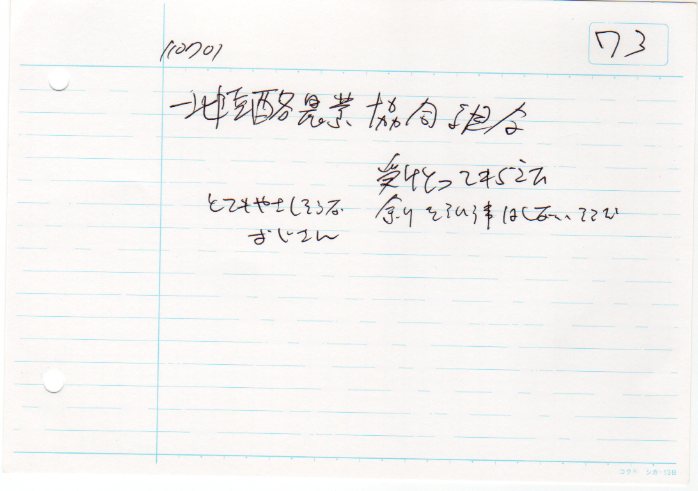 73
110701
酪農業協同組合
受けとってもらえ
とてもやさしそうな
余り そういう事はしないので
おじさん
コクヨ シカ-13B